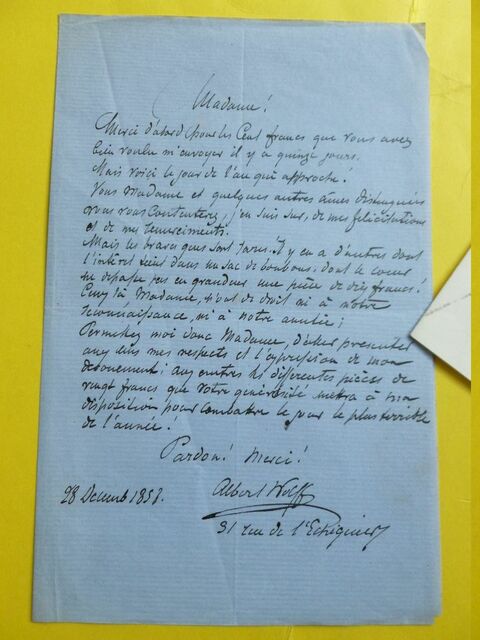 Madame!
Merci d'abord pour les Cent francs que vous avez
bien voulu m'envoyer il y a quinze jours.
Mais voici le jour de l'an qui approche!
Vous Madame et quelques autres âmes distinguées
vous vous contentez, j'en suis sur, de mes félicitations
et de mes remerciments.
Mais les braves gens sont rares. Il y en a d'autres dont
l'intéret tient dans un sac de bonbons, dont le coeur
ne dépasse pas en grandeur une pièce de dix francs!
Ceux là Madame, n'ont de droit ni à notre
reconnaissance, ni à notre amitié;
Permettez moi donc Madame, d'aller presenter
aux uns mes respects et l'expression de mon
dévouement; aux autres les differentes pièces de
vingt francs que votre générosité mettra à ma
disposition pour combattre le jour le plus terrible
de l'année.
Pardon! Merci!
28 Decemb 1858.
Albert Wolff
31 rue de l'Echiquier